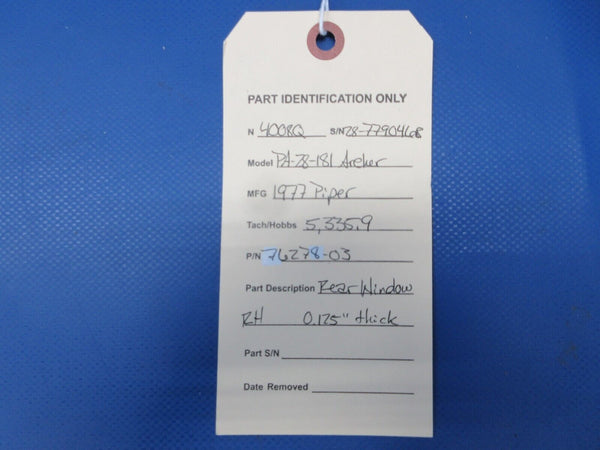 PART IDENTIFICATION ONLY
N 4008Q S/N 28-7790468
Model PA-28-181 Archer
MFG 1977 Piper
Tach/Hobbs 5,335.9
P/N 76278-03
Part Description Rear Window
RH 0.125" thick
Part S/N
Date Removed